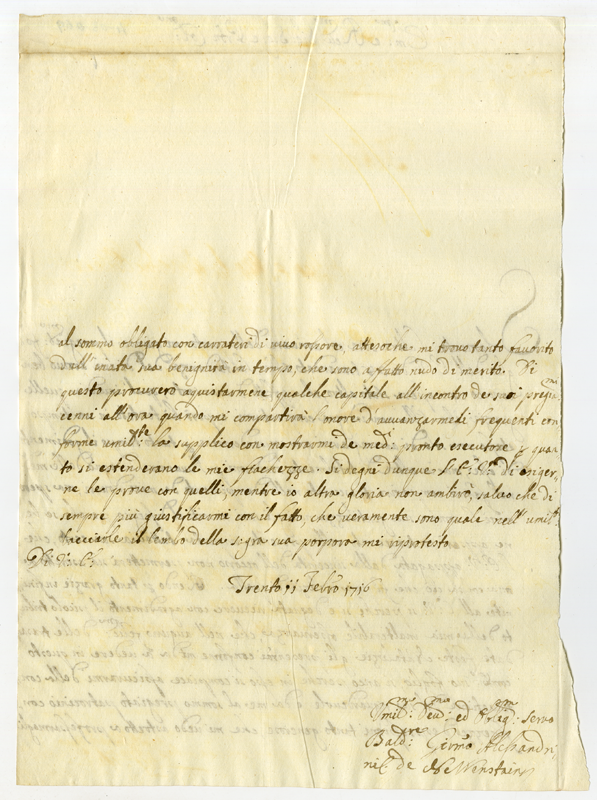 al sommo obligato con carrateri di vivo rossore, attesoche mi trovo tanto favorito
dall'inata sua benignità in tempo, che sono affatto nudo di merito. Di
questo procurerò aquistarmene qualche capitale all'incontro de suoi
cenni all'ora quando mi compartirà l'onore d'avvanzarmedi frequenti con
forme umil:te la supplico con mostrarme de med:i pronto esecutore p quan
to si estenderano le mie fiachezze. Si degni dunque di esiger
ne le prove con quelli, mentre io altra gloria non ambirò, salvo che di
sempre più giustificarmi con il fatto, che veramente sono quale nell'umil:te
bacciarle il lembo della sagra sua porpora mi riprotesto
Trento 11 Febro 1716
Umil:mi Dev:mo ed servo